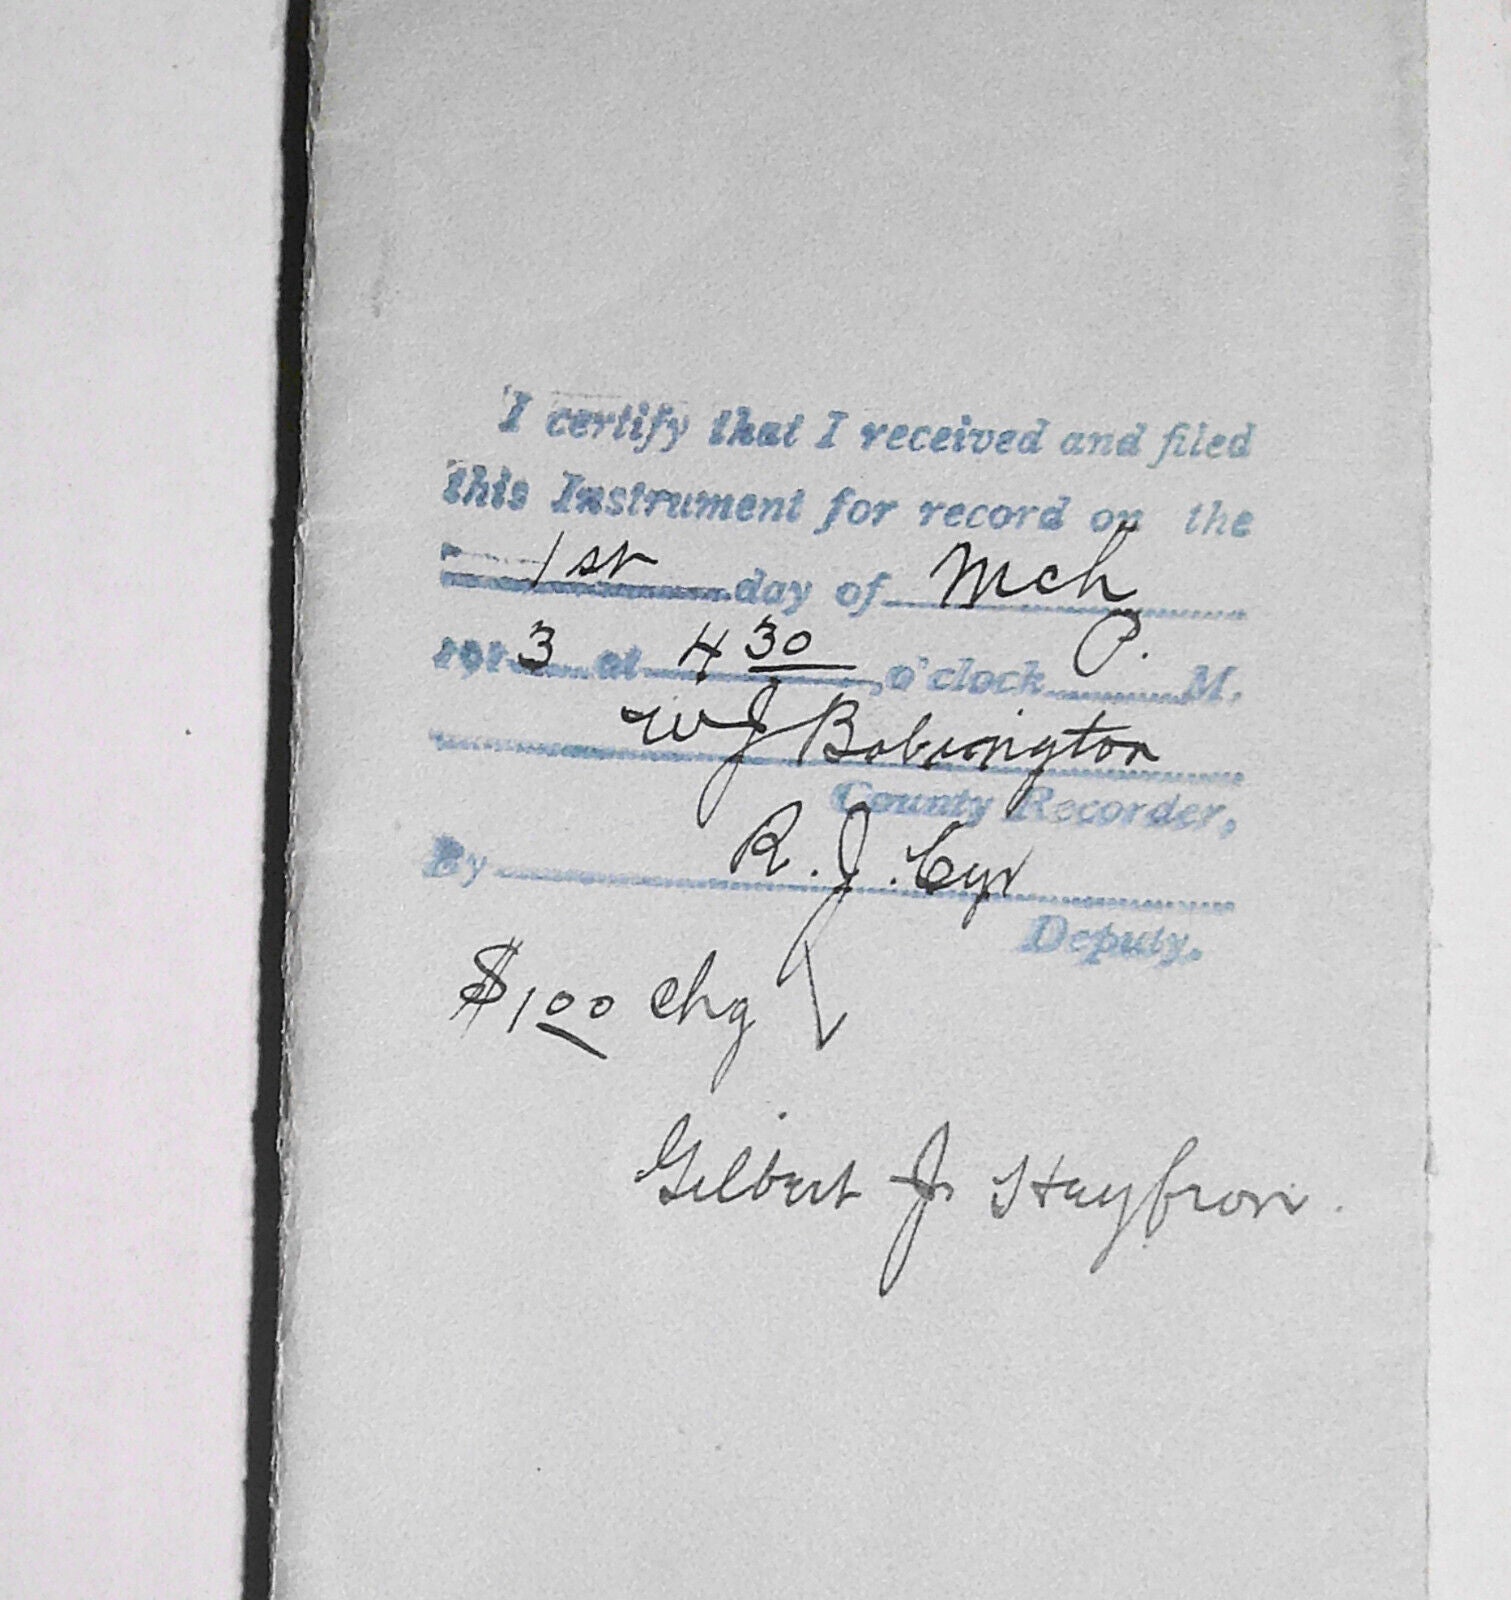 I certify that I received and filed
this Instrument for record on the
1st day of Mch
1913 at 4 30 o'clock P. M.
W J Babington
County Recorder,
By R. J. Cyr
Deputy.
$1 00 chg
Gilbert J Heyfron.